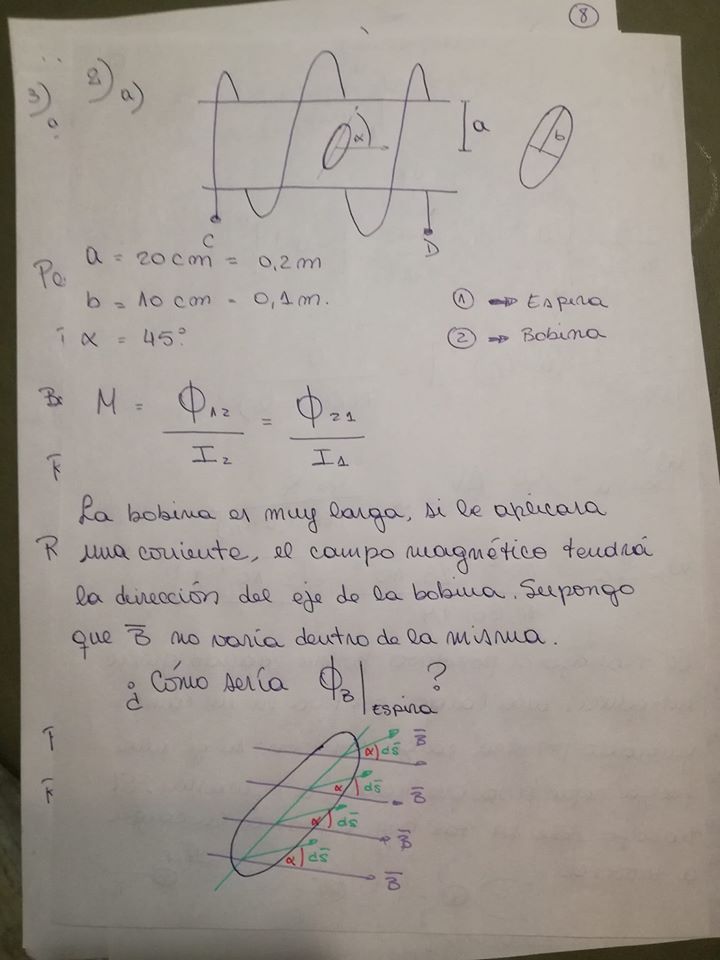 8
3)
a
2) a)
α
a
b
C
D
a = 20 cm = 0,2 m
b = 10 cm = 0,1 m.
α = 45°
① → Espira
② → Bobina
M = Φ₁₂ / I₂ = Φ₂₁ / I₁
La bobina es muy larga, si le aplicara
una corriente, el campo magnético tendrá
la dirección del eje de la bobina. Supongo
que B̅ no varía dentro de la misma.
¿Cómo sería Φ_B|ESPIRA?
α) ds̅ B̅
α) ds̅ B̅
α) ds̅ B̅
α) ds̅ B̅